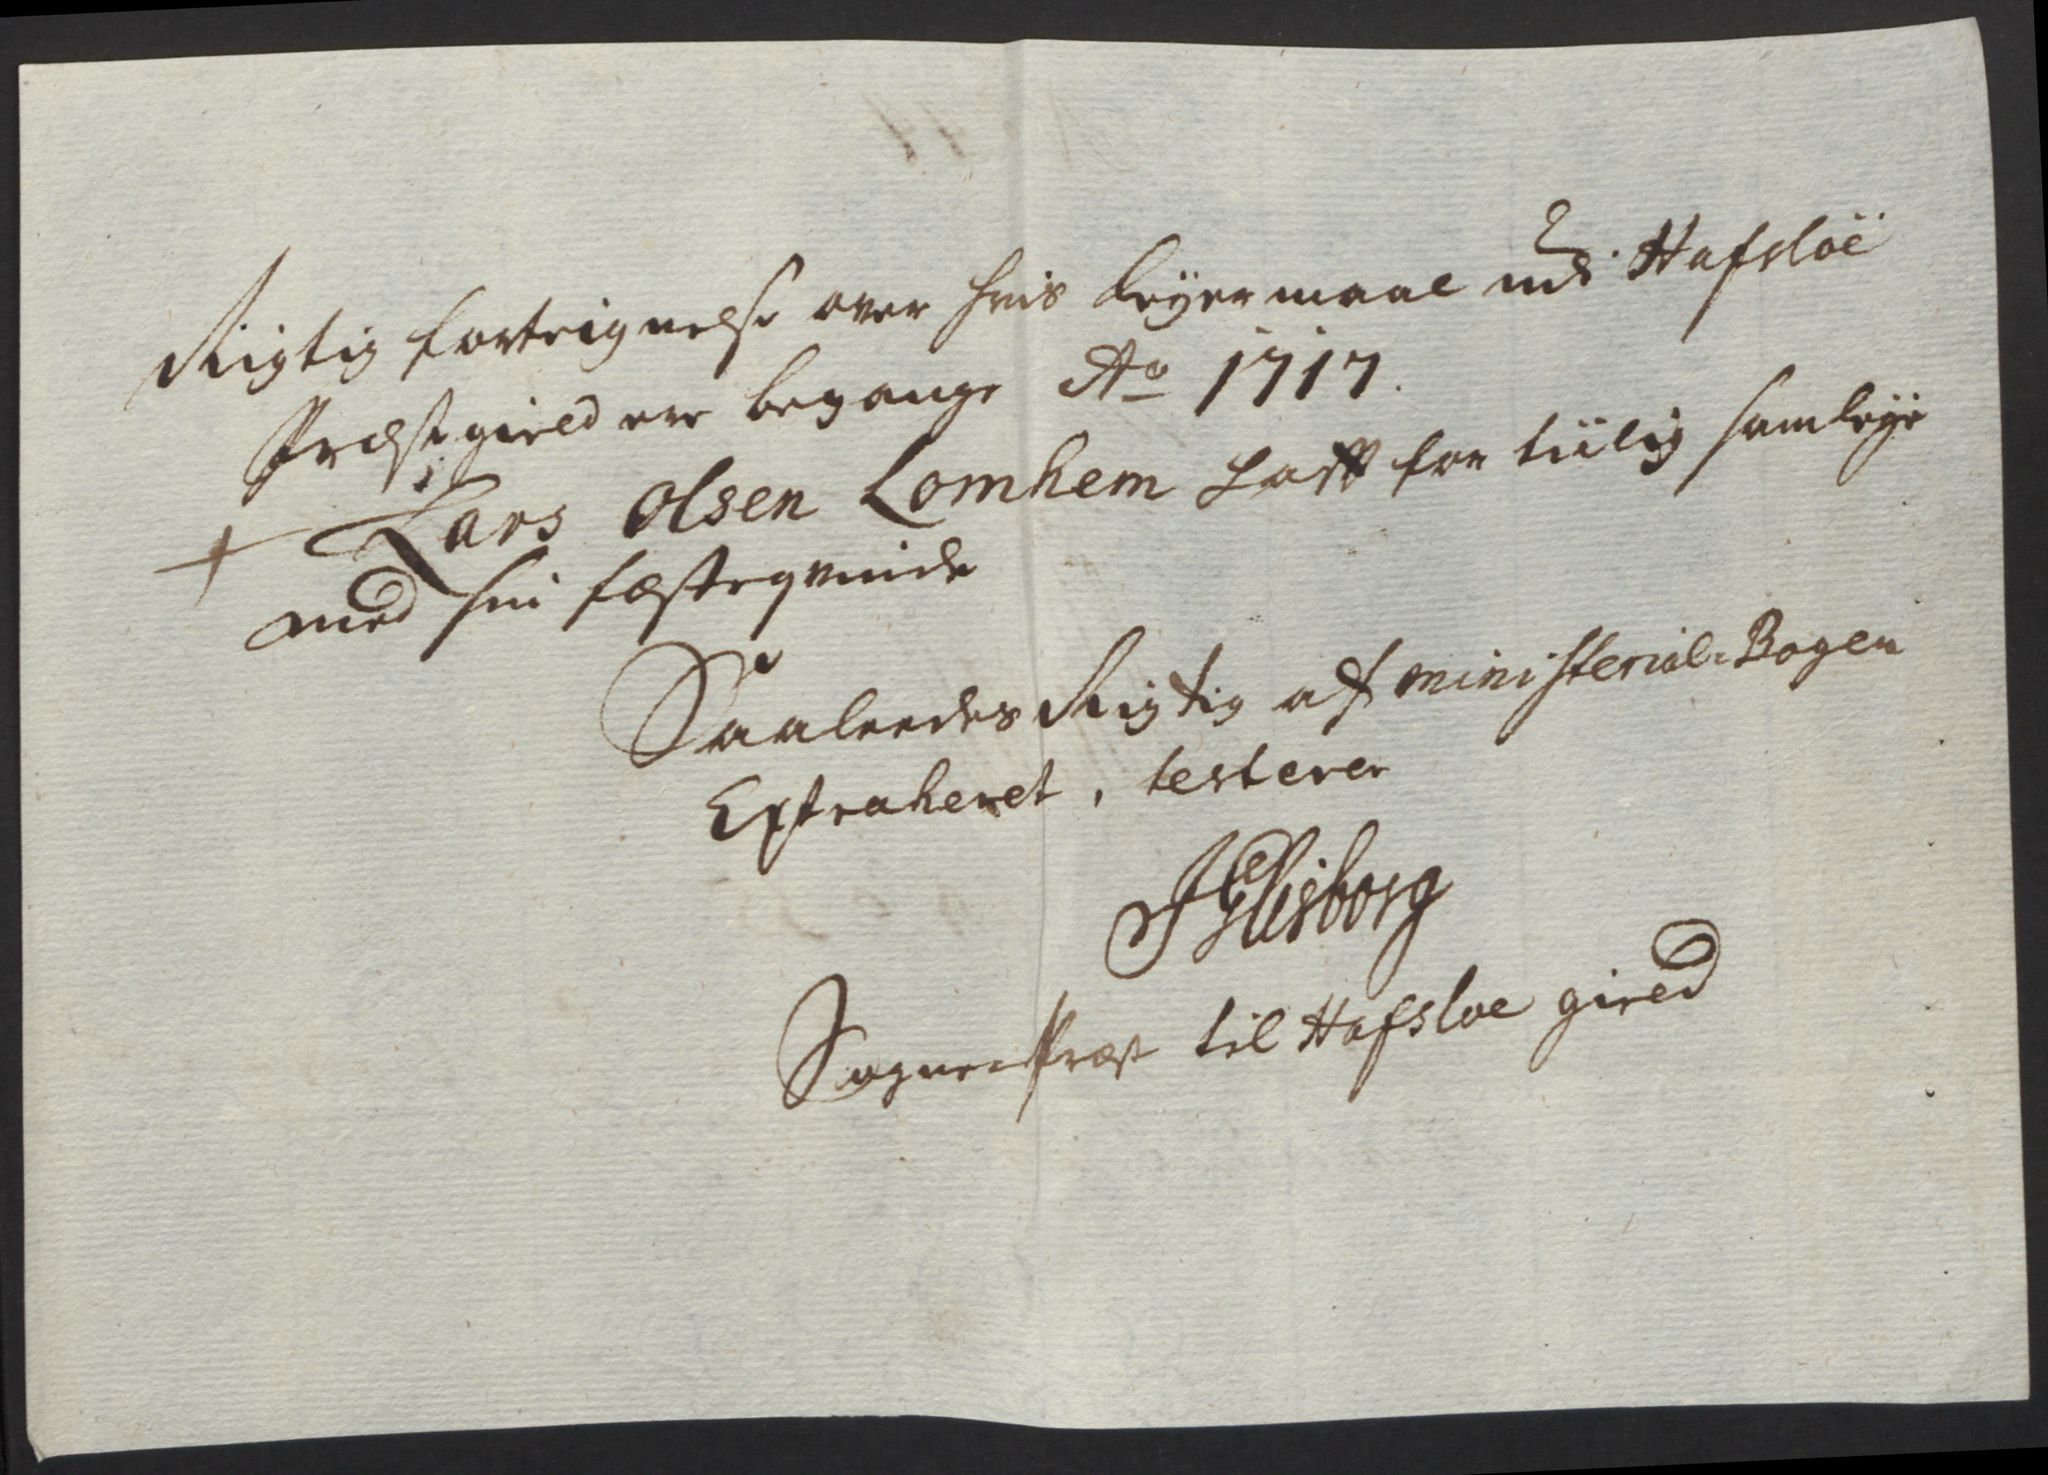 Rigtig forteignelse over hvis Leyermaal udi Hafsloe
Præstegield ere begange Ao 1717.
+ Lars Olsen Lomhem for tiilig samleye
med sin fæsteqvinde
Saaleedes Rigtig af ministerial-Bogen
Extraheret, testerer
Sogne-Præst til Hafsloe gield